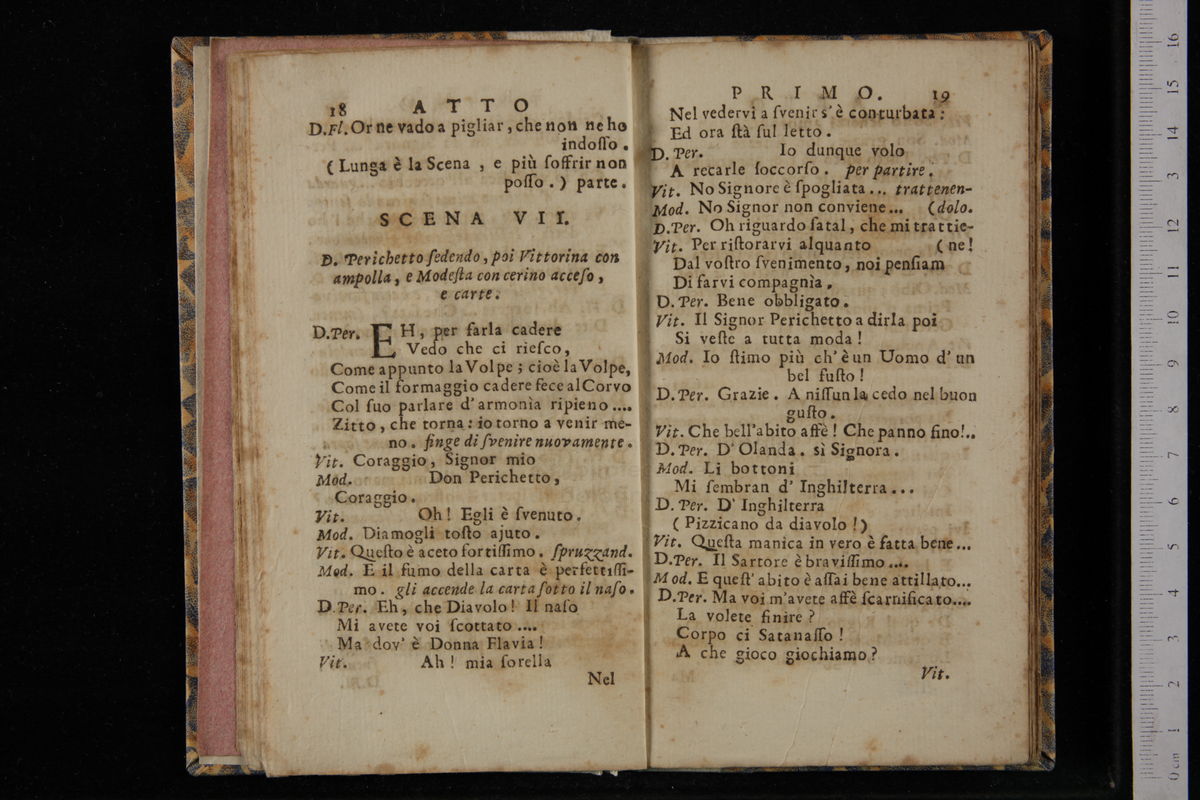 18 ATTO
D.Fl. Or ne vado a pigliar, che non ne ho
indoſſo.
(Lunga è la Scena, e più ſoffrir non
poſſo.) parte.
SCENA VII.
D. Perichetto ſedendo, poi Vittorina con
ampolla, e Modeſta con cerino acceſo,
e carte.
D.Per. EH, per farla cadere
Vedo che ci rieſco,
Come appunto la Volpe; cioè la Volpe,
Come il formaggio cadere fece al Corvo
Col ſuo parlare d'armonìa ripieno....
Zitto, che torna: io torno a venir me-
no. finge di ſvenire nuovamente.
Vit. Coraggio, Signor mio
Mod. Don Perichetto,
Coraggio.
Vit. Oh! Egli è ſvenuto.
Mod. Diamogli toſto ajuto.
Vit. Queſto è aceto fortiſſimo. ſpruzzand.
Mod. E il fumo della carta è perfettiſſi-
mo. gli accende la carta ſotto il naſo.
D.Per. Eh, che Diavolo! Il naſo
Mi avete voi ſcottato....
Ma dov' è Donna Flavia!
Vit. Ah! mia ſorella
Nel
PRIMO. 19
Nel vedervi a ſvenir s'è conturbata:
Ed ora ſtà ſul letto.
D. Per. Io dunque volo
A recarle ſoccorſo. per partire.
Vit. No Signore è ſpogliata... trattenen-
Mod. No Signor non conviene... (dolo.
D.Per. Oh riguardo fatal, che mi trattie-
Vit. Per riſtorarvi alquanto (ne!
Dal voſtro ſvenimento, noi penſiam
Di farvi compagnìa.
D. Per. Bene obbligato.
Vit. Il Signor Perichetto a dirla poi
Si veſte a tutta moda!
Mod. Io ſtimo più ch'è un Uomo d'un
bel fuſto!
D. Per. Grazie. A niſſun la cedo nel buon
guſto.
Vit. Che bell'abito affè! Che panno fino!..
D. Per. D'Olanda. sì Signora.
Mod. Li bottoni
Mi ſembran d'Inghilterra...
D. Per. D'Inghilterra
(Pizzicano da diavolo!)
Vit. Queſta manica in vero è fatta bene...
D.Per. Il Sartore è braviſſimo....
Mod. E queſt' abito è aſſai bene attillato...
D.Per. Ma voi m'avete affè ſcarnificato....
La volete finire?
Corpo ci Satanaſſo!
A che gioco giochiamo?
Vit.